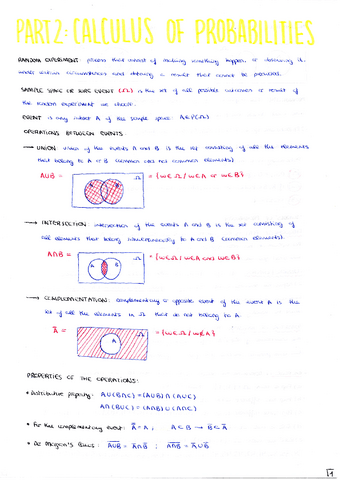 PART 2: CALCULUS OF PROBABILITIES
RANDOM EXPERIMENT: process that consist of making something happen, or observing it,
under certain circumstances and obtaining a result that cannot be predicted.
SAMPLE SPACE OR SURE EVENT (Ω) is the set of all possible outcomes or result of
the random experiment we choose.
EVENT is any subset A of the sample space: A∈P(Ω)
OPERATIONS BETWEEN EVENTS
→ UNION: union of the events A and B is the set consisting of all the elements
that belong to A or B (common and not common elements)
A∪B = Ω = {w∈Ω / w∈A or w∈B}
→ INTERSECTION: intersection of the events A and B is the set consisting of
all elements that belong simultaneously to A and B (common elements).
A∩B = A B Ω = {w∈Ω / w∈A and w∈B}
→ COMPLEMENTATION: complementary or opposite event of the event A is the
set of all the elements in Ω that do not belong to A.
Ā = A Ω = {w∈Ω / w∉A}
PROPERTIES OF THE OPERATIONS:
• Distributive property: A∪(B∩C) = (A∪B)∩(A∪C)
A∩(B∪C) = (A∩B)∪(A∩C)
• For the complementary event: A̿ = A ; A⊂B → B̅⊂A̅
• De Morgan's Laws: A̅∪̅B̅ = A̅∩B̅ ; A̅∩̅B̅ = A̅∪B̅
1